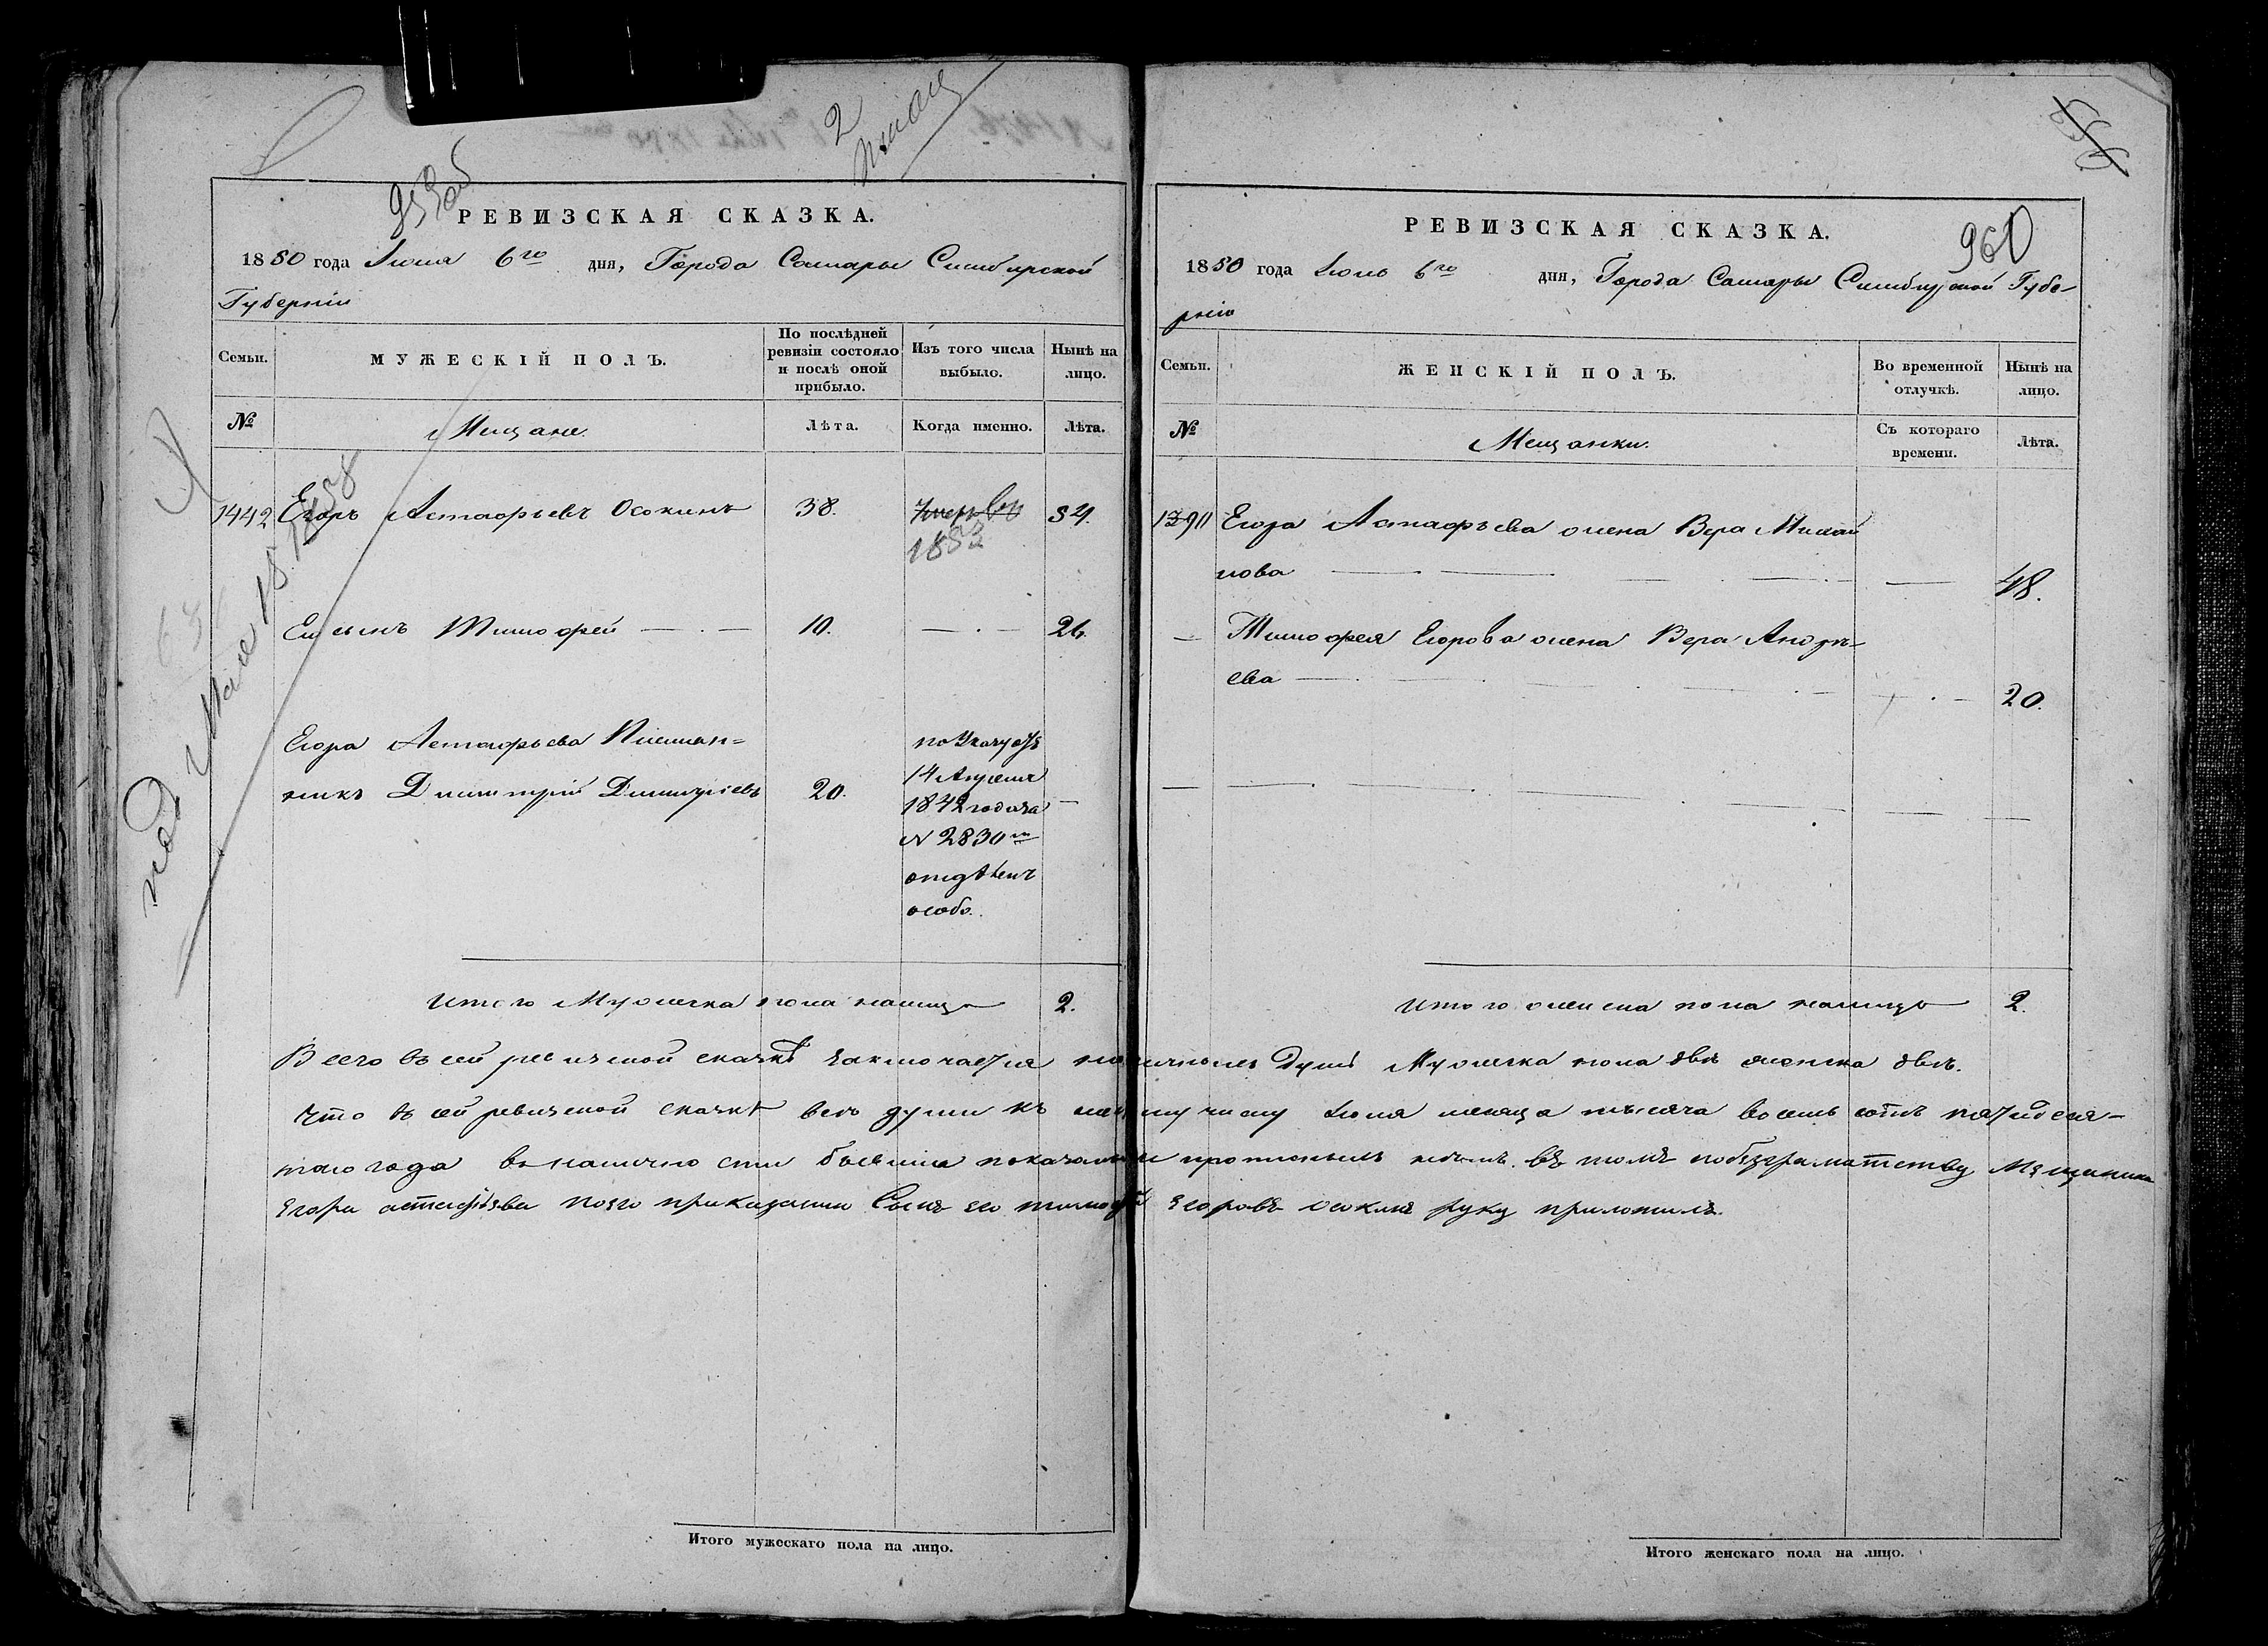 2
959об
РЕВИЗСКАЯ СКАЗКА.
1850 года Июля 6го дня, Города Самары Симбирской
Губерніи
Семьи.
МУЖЕСКІЙ ПОЛЪ.
По послѣдней
ревизіи состояло
и послѣ оной
прибыло.
Изъ того числа
выбыло.
Нынѣ на
лицо.
№
Мещане.
Лѣта.
Когда именно.
Лѣта.
1442 Егоръ Астафьевъ Осокинъ 38. 54.
1853
Ег сынъ Тимофей 10. 26.
Егора Астафьева Племян=
никъ Димитрій Димитріевъ 20.
по Указу отъ
14 Апреля
1842 года за
N 2830м
отдѣленъ
особо.
Итого Мужеска пола налицо 2.
960
РЕВИЗСКАЯ СКАЗКА.
1850 года Июль 6го дня, Города Самары Симбирской Губе-
рніи
Семьи.
ЖЕНСКІЙ ПОЛЪ.
Во временной
отлучкѣ.
Нынѣ на
лицо.
№
Мещанки.
Съ котораго
времени.
Лѣта.
Егора Астафьева жена Вера Михай
лова 48.
Тимофея Егорова жена Вера Андрѣ-
ева 20.
Итого женска пола налицо 2.
Всего въ сей ревизской сказкѣ заключается наличныхъ душъ Мужеска пола двѣ женска двѣ.
Что въ сей ревизской сказкѣ всѣ души къ числу Июля месяца тысяча восемь сотъ пятидеся-
таго года въ наличности бывшіе показаны въ томъ побезграматству Мещанина
Егора астафьева поего приказанию Сынъ его тимофей Егоровъ осокинъ руку приложилъ.
Итого мужескаго пола на лицо.
Итого женскаго пола на лицо.